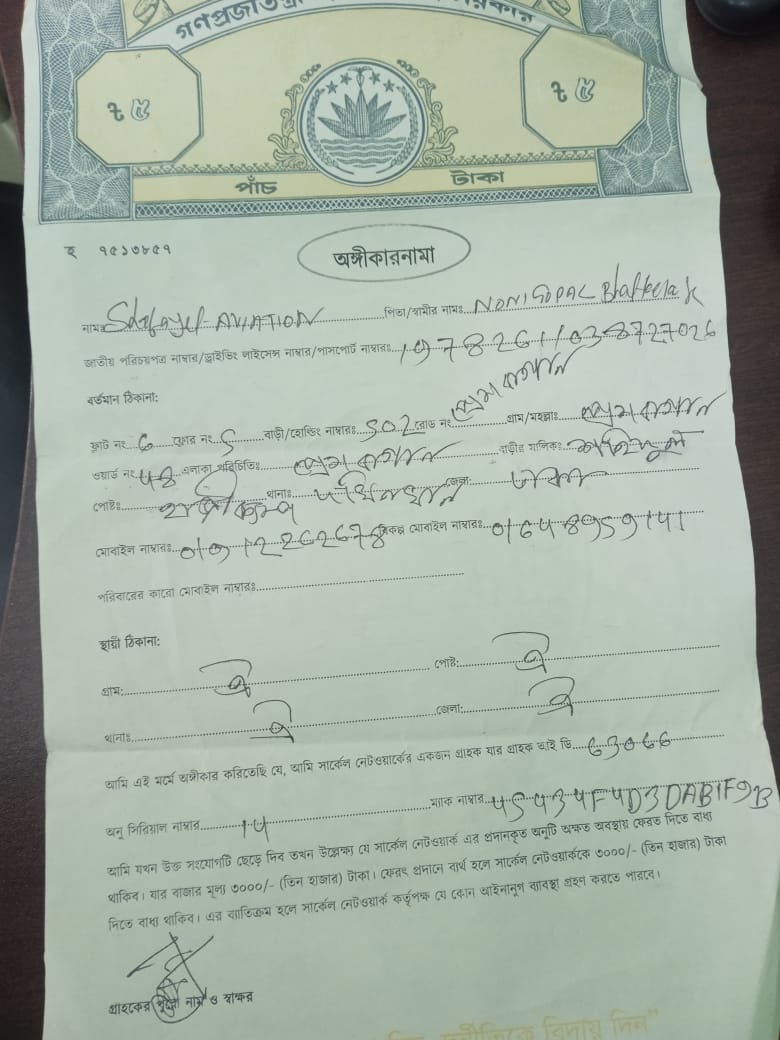 গণপ্রজাতন্ত্রী
৳ ৫ ৳ ৫
পাঁচ টাকা
হ ৭৫১৩৮৫৭
অঙ্গীকারনামা
নামঃ AVIATION পিতা/স্বামীর নামঃ NONI GOPAL
জাতীয় পরিচয়পত্র নাম্বার/ড্রাইভিং লাইসেন্স নাম্বার/পাসপোর্ট নাম্বারঃ
বর্তমান ঠিকানা:
ফ্লাট নং 6 ফ্লোর নং 5 বাড়ী/হোল্ডিং নাম্বারঃ 502 রোড নং প্রেম বাগান গ্রাম/মহল্লাঃ প্রেম বাগান
ওয়ার্ড নং 48 এলাকা পরিচিতিঃ প্রেম বাগান বাড়ীর মালিকঃ
পোষ্টঃ থানাঃ দক্ষিনখান জেলা: ঢাকা
মোবাইল নাম্বারঃ 01912262678 বিকল্প মোবাইল নাম্বারঃ 01648959141
পরিবারের কারো মোবাইল নাম্বারঃ
স্থায়ী ঠিকানা:
গ্রাম: ঐ পোষ্ট: ঐ
থানাঃ ঐ জেলা: ঐ
আমি এই মর্মে অঙ্গীকার করিতেছি যে, আমি সার্কেল নেটওয়ার্কের একজন গ্রাহক যার গ্রাহক আই ডি 63066
অনু সিরিয়াল নাম্বার 14 ম্যাক নাম্বার
আমি যখন উক্ত সংযোগটি ছেড়ে দিব তখন উল্লেক্ষ্য যে সার্কেল নেটওয়ার্ক এর প্রদানকৃত অনুটি অক্ষত অবস্থায় ফেরত দিতে বাধ্য
থাকিব। যার বাজার মূল্য ৩০০০/- (তিন হাজার) টাকা। ফেরৎ প্রদানে ব্যর্থ হলে সার্কেল নেটওয়ার্ককে ৩০০০/- (তিন হাজার) টাকা
দিতে বাধ্য থাকিব। এর ব্যতিক্রম হলে সার্কেল নেটওয়ার্ক কর্তৃপক্ষ যে কোন আইনানুগ ব্যবস্থা গ্রহন করতে পারবে।
গ্রাহকের পুরো নাম ও স্বাক্ষর
বিদায় দিন"